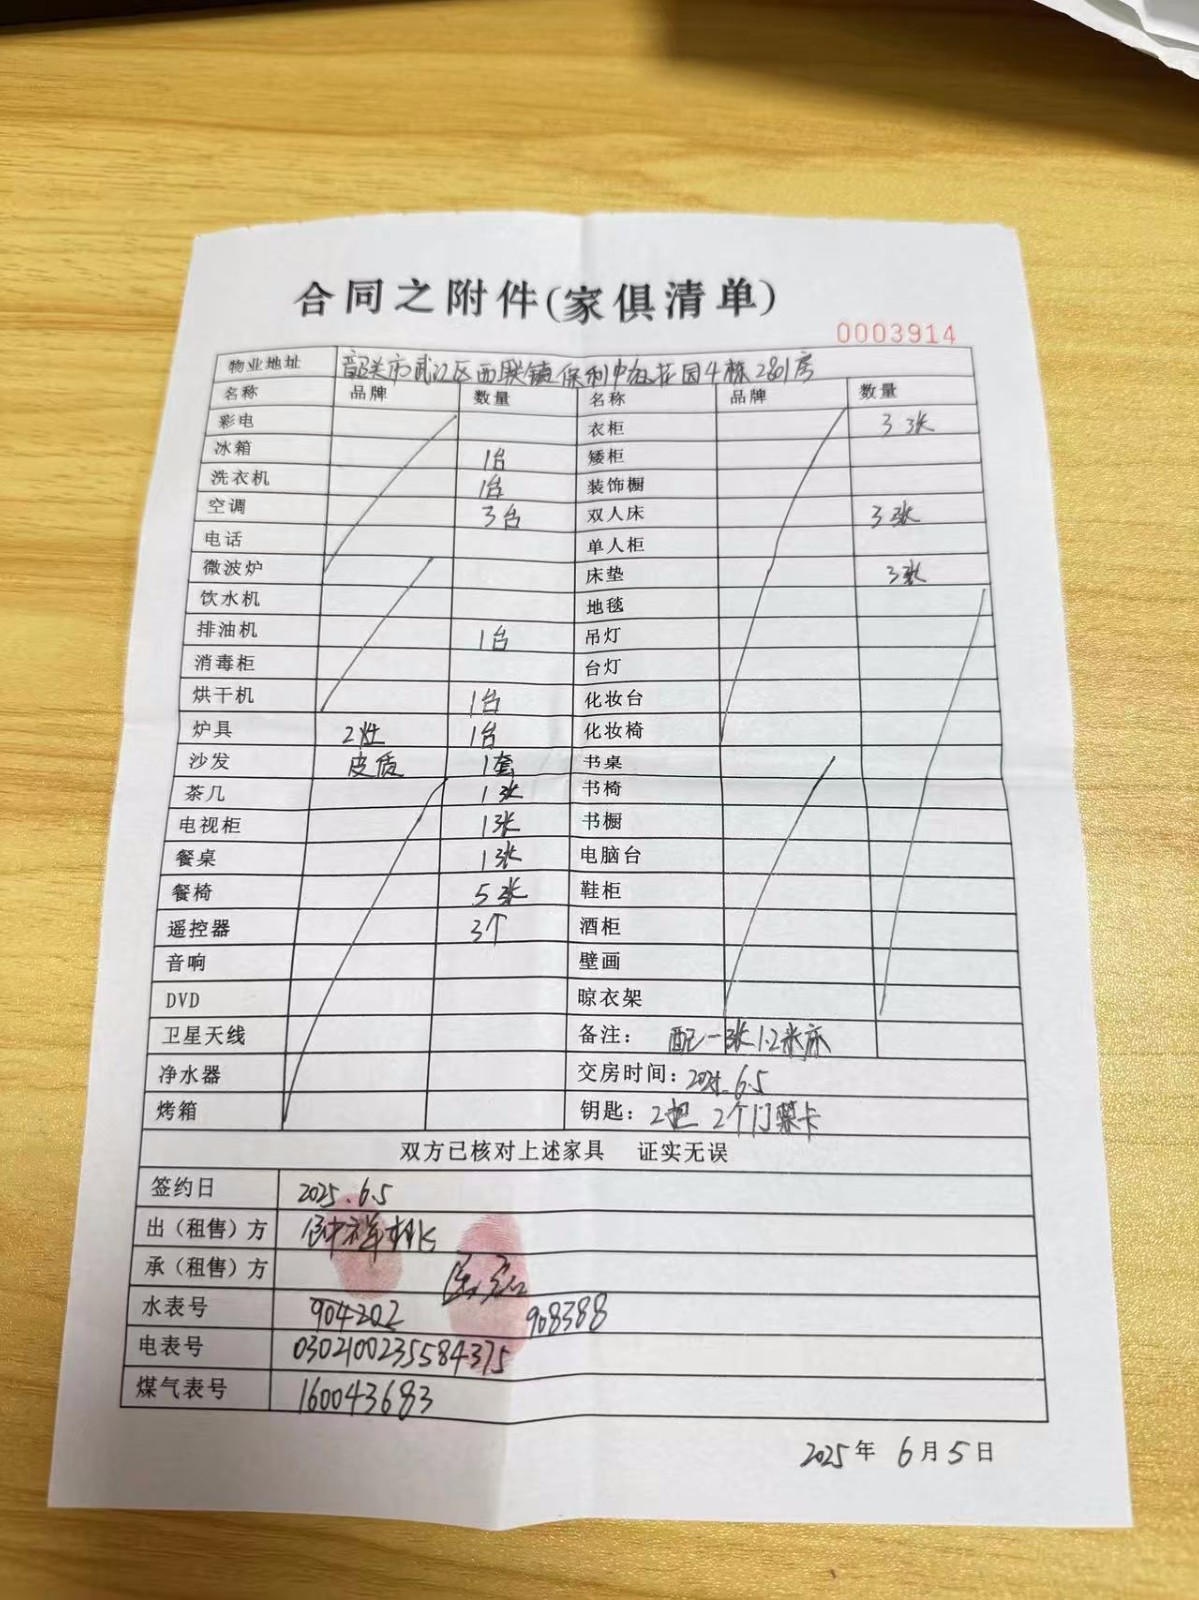 合同之附件(家俱清单)
0003914
物业地址 韶关市武江区西联镇保利中 花园4栋2801房
名称 品牌 数量 名称 品牌 数量
彩电 衣柜 3张
冰箱 1台 矮柜
洗衣机 1台 装饰橱
空调 3台 双人床 3张
电话 单人柜
微波炉 床垫 3张
饮水机 地毯
排油机 1台 吊灯
消毒柜 台灯
烘干机 1台 化妆台
炉具 2灶 1台 化妆椅
沙发 皮质 1套 书桌
茶几 1张 书椅
电视柜 1张 书橱
餐桌 1张 电脑台
餐椅 5张 鞋柜
遥控器 3个 酒柜
音响 壁画
DVD 晾衣架
卫星天线 备注: 配一张1.2米床
净水器 交房时间: 2025.6.5
烤箱 钥匙: 2把 2个门禁卡
双方已核对上述家具 证实无误
签约日 2025.6.5
出（租售）方
承（租售）方
水表号 904202 908388
电表号 0302100235584375
煤气表号 160043683
2025年 6月5日